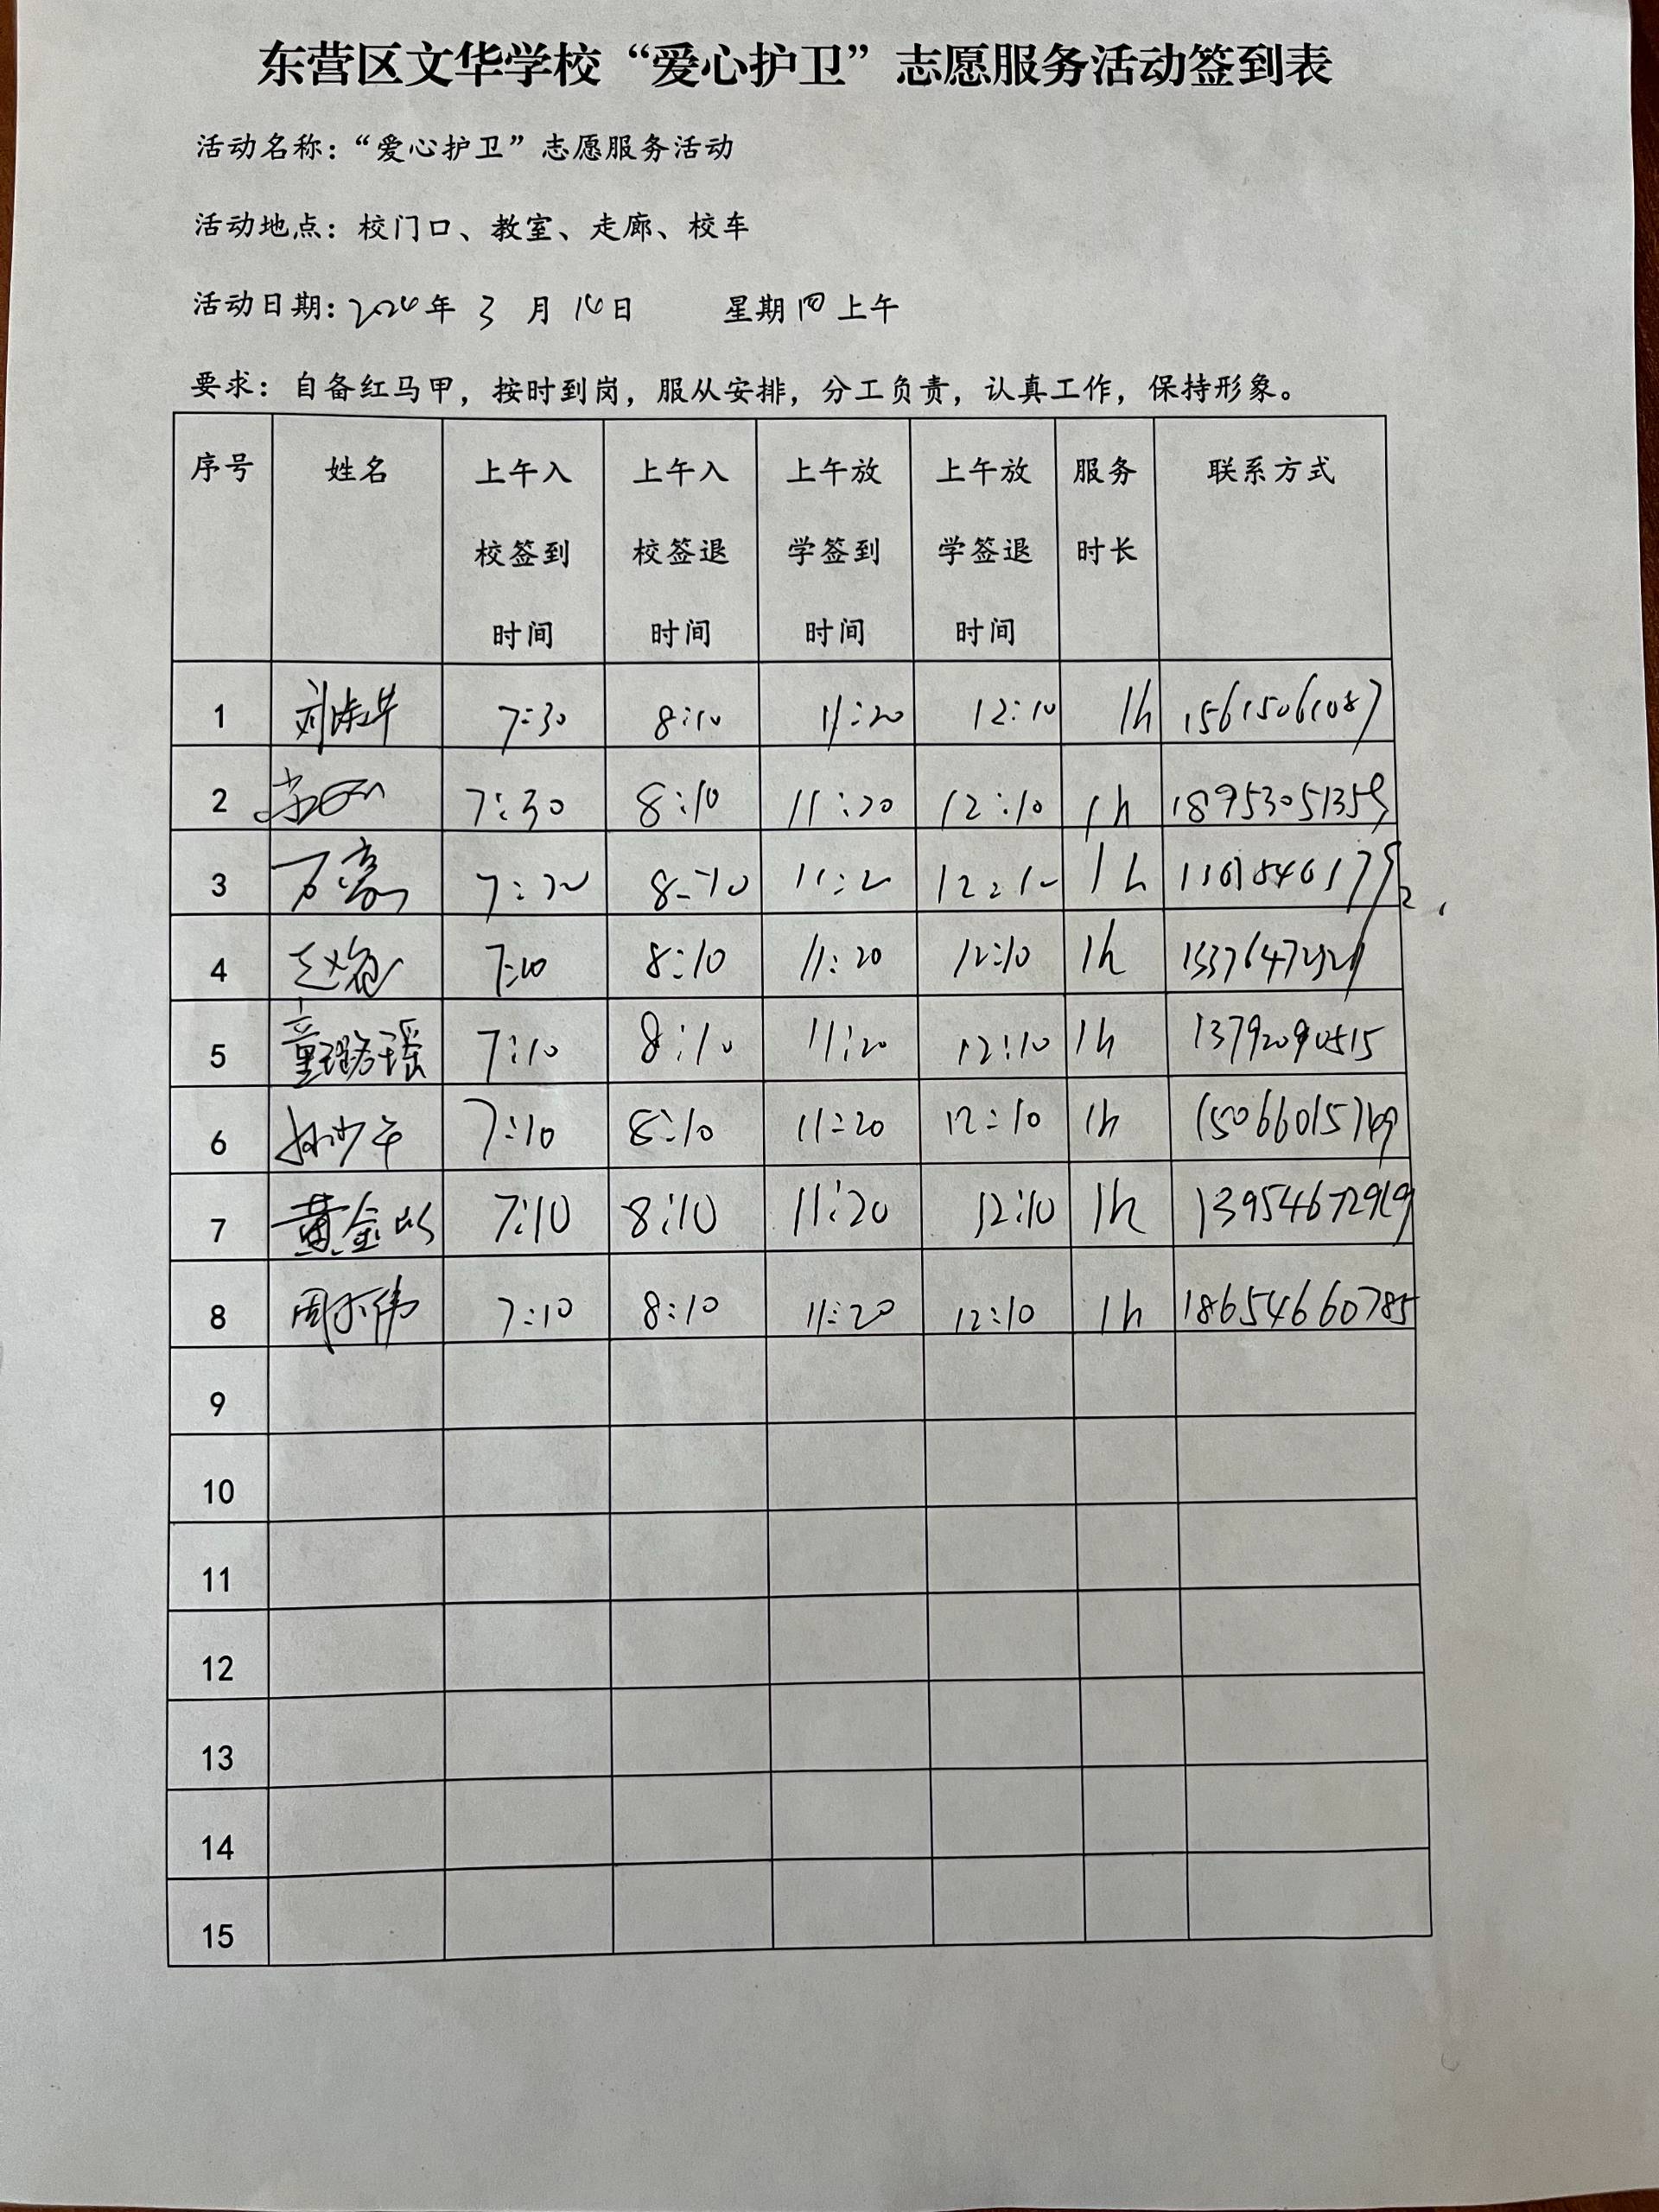 东营区文华学校“爱心护卫”志愿服务活动签到表
活动名称：“爱心护卫”志愿服务活动
活动地点：校门口、教室、走廊、校车
活动日期：2024年 3 月 14日 星期四上午
要求：自备红马甲，按时到岗，服从安排，分工负责，认真工作，保持形象。
序号 姓名 上午入校签到时间 上午入校签退时间 上午放学签到时间 上午放学签退时间 服务时长 联系方式
1 7:30 8:10 11:20 12:10 1h 15615061087
2 7:30 8:10 11:20 12:10 1h 18953051359
3 万 8:10 11:20 12:10 1h
4 赵 8:10 11:20 12:10 1h
5 童璐瑶 7:10 8:10 11:20 12:10 1h 13792090515
6 7:10 8:10 11:20 12:10 1h 15066015749
7 黄金 7:10 8:10 11:20 12:10 1h 13954672919
8 周 伟 7:10 8:10 11:20 12:10 1h 18654660785
9
10
11
12
13
14
15